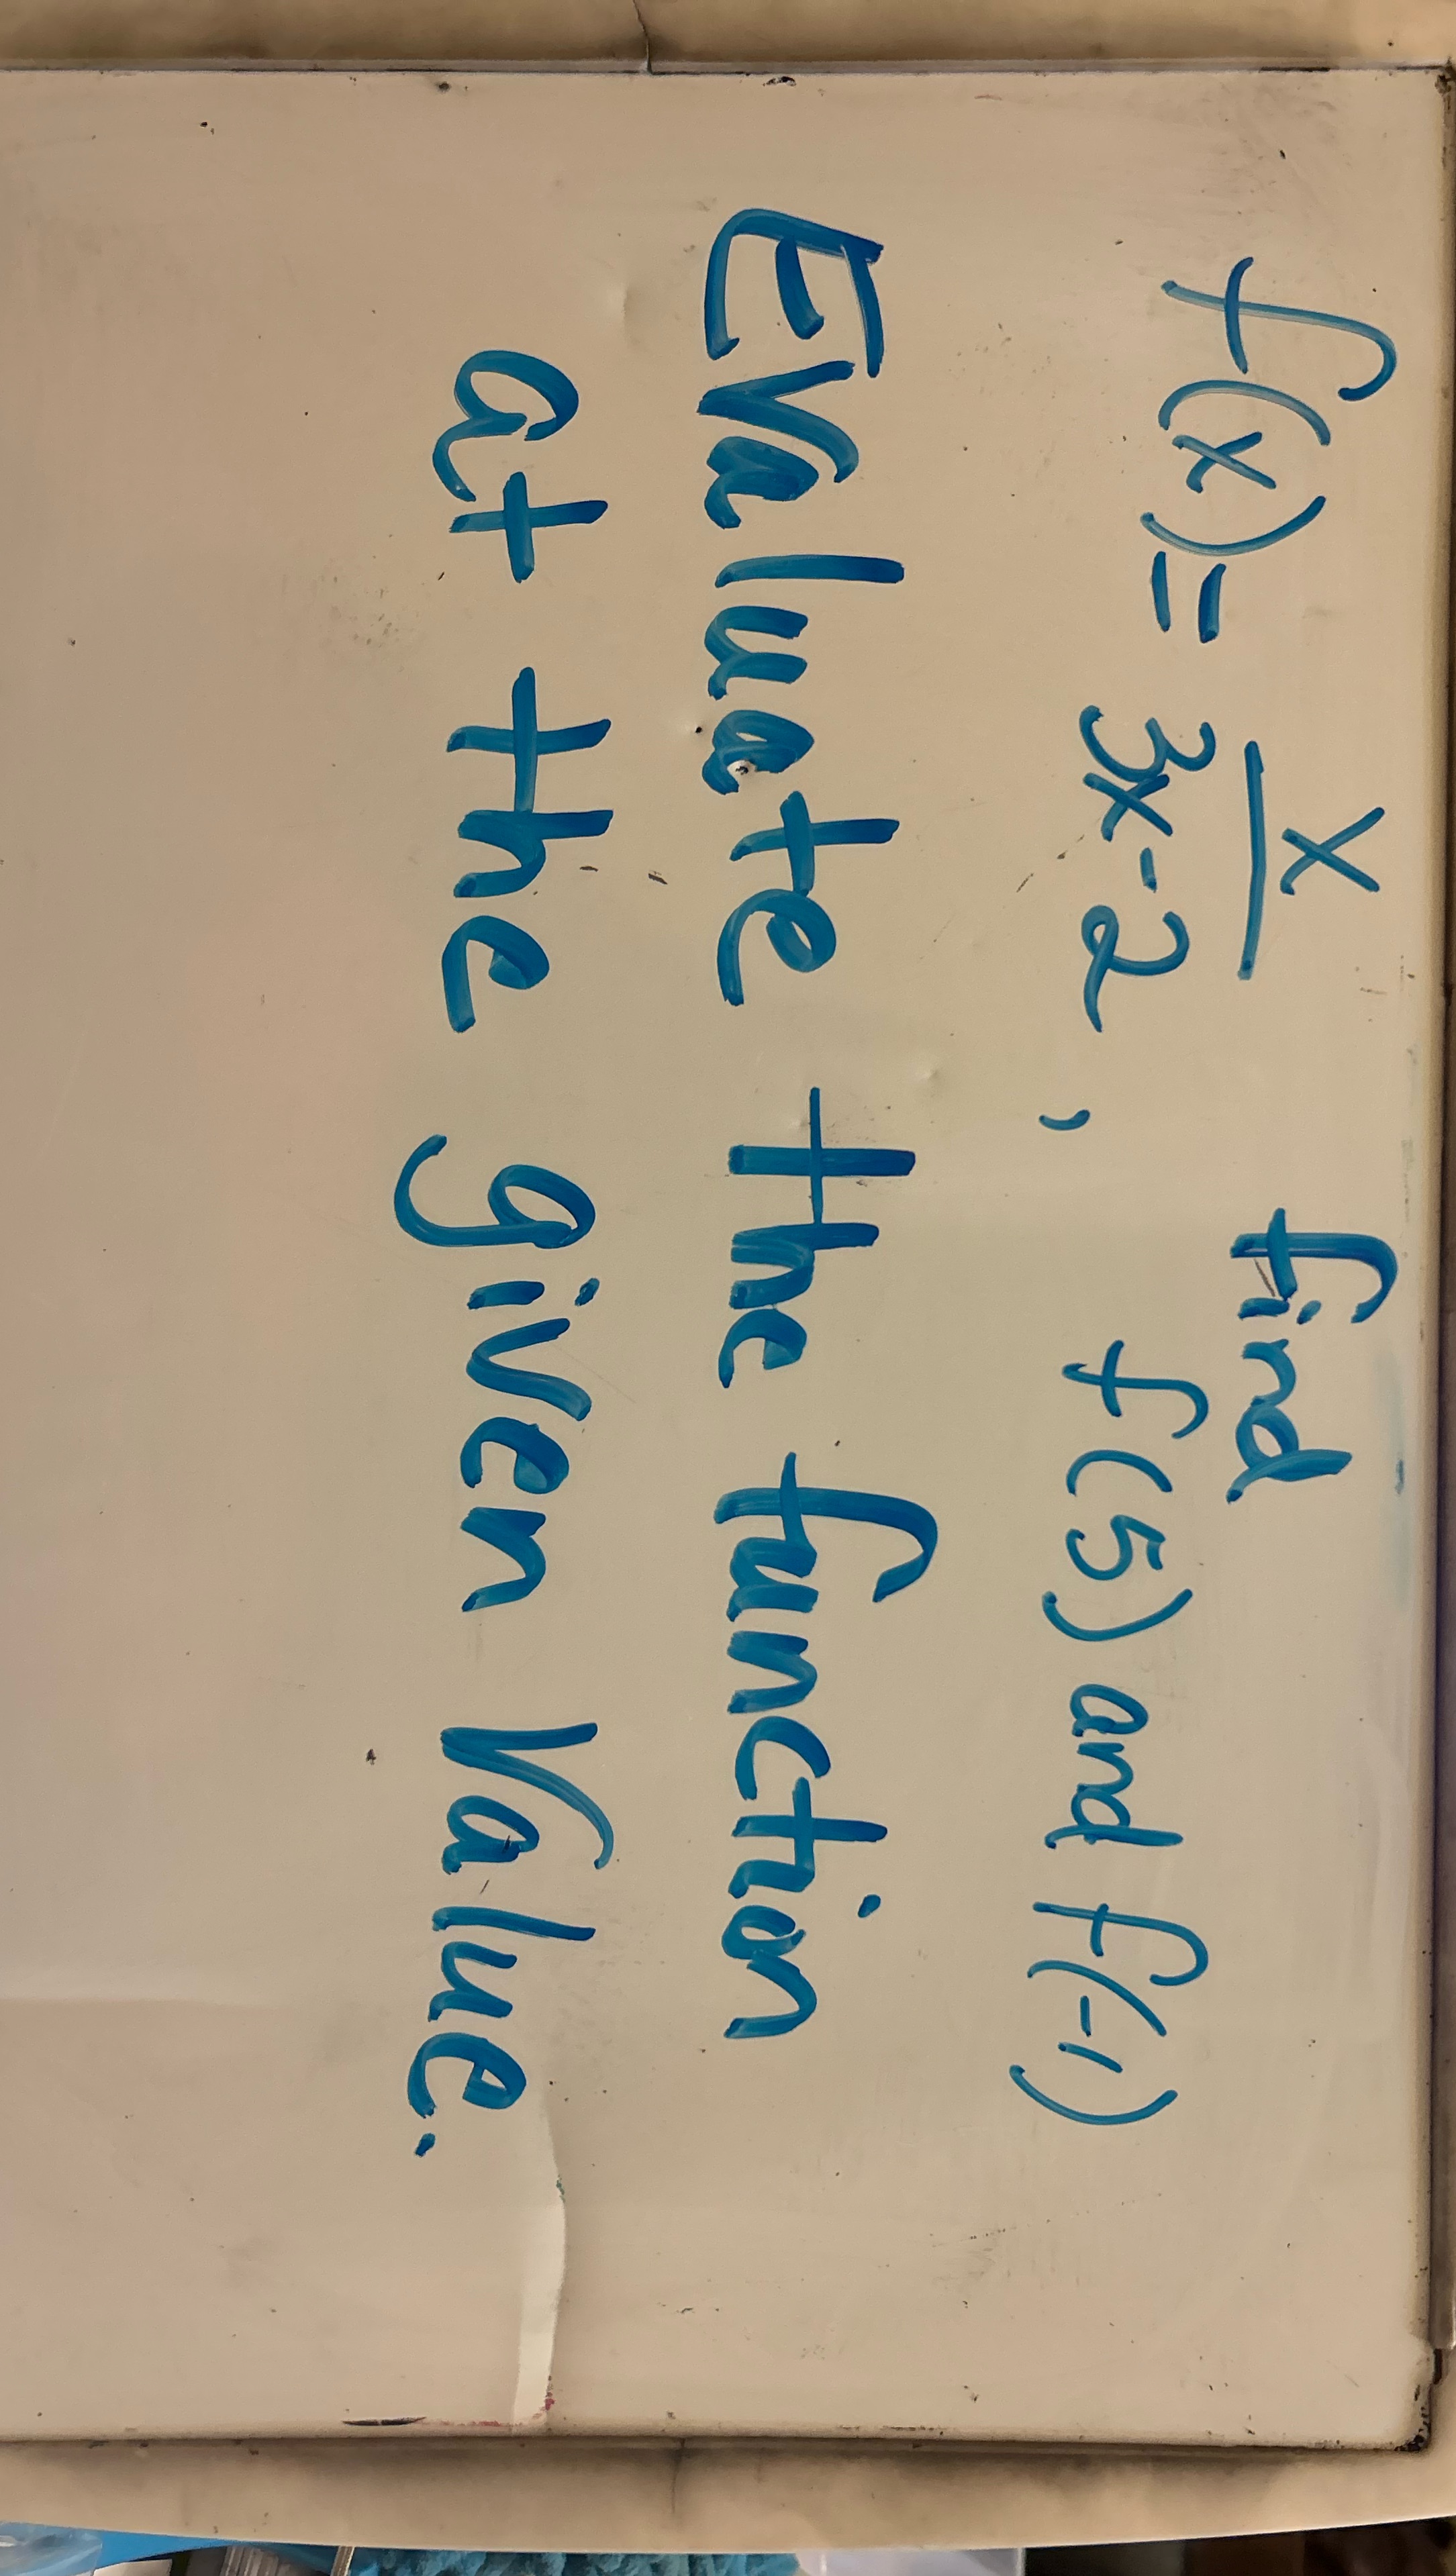 f(x) = x / 3x-2 , find
f(5) and f(-1)
Evaluate the function
at the given Value.